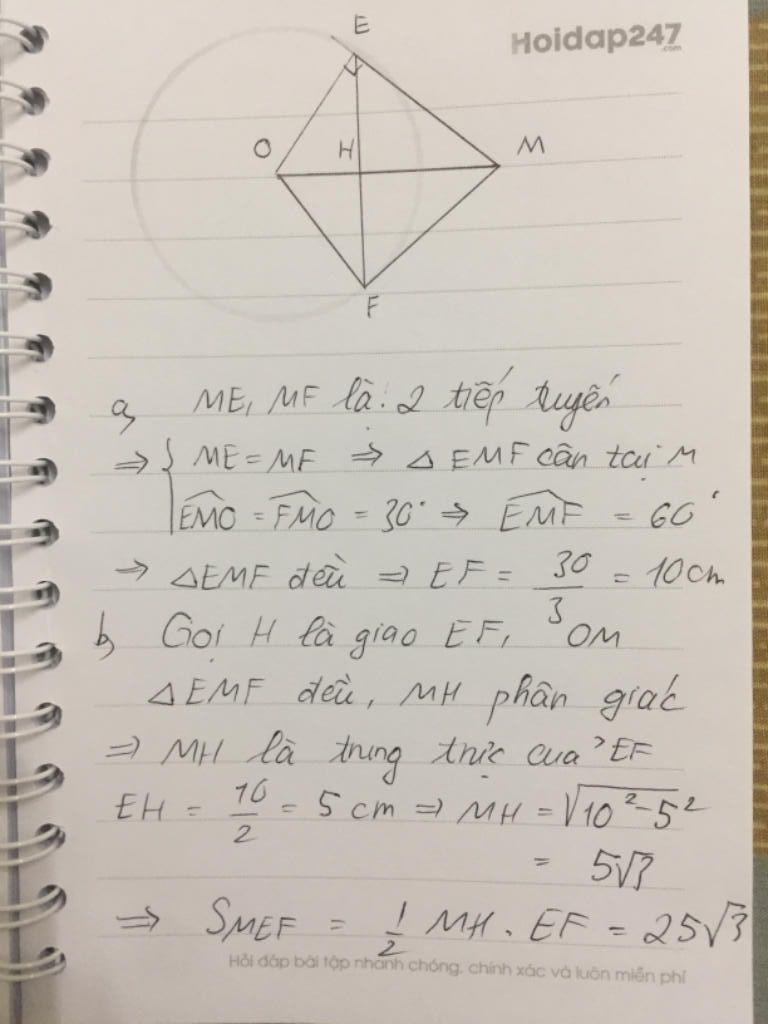 E
Hoidap247
.com
O H M
F
a, ME, MF là 2 tiếp tuyến
⇒ { ME = MF ⇒ Δ EMF cân tại M
EMO = FMO = 30° ⇒ EMF = 60°
⇒ ΔEMF đều ⇒ EF = 30/3 = 10cm
b, Gọi H là giao EF, OM
ΔEMF đều, MH phân giác
⇒ MH là trung trực của EF
EH = 10/2 = 5 cm ⇒ MH = √(10² - 5²)
= 5√3
⇒ SMEF = 1/2 MH . EF = 25√3
Hỏi đáp bài tập nhanh chóng, chính xác và luôn miễn phí